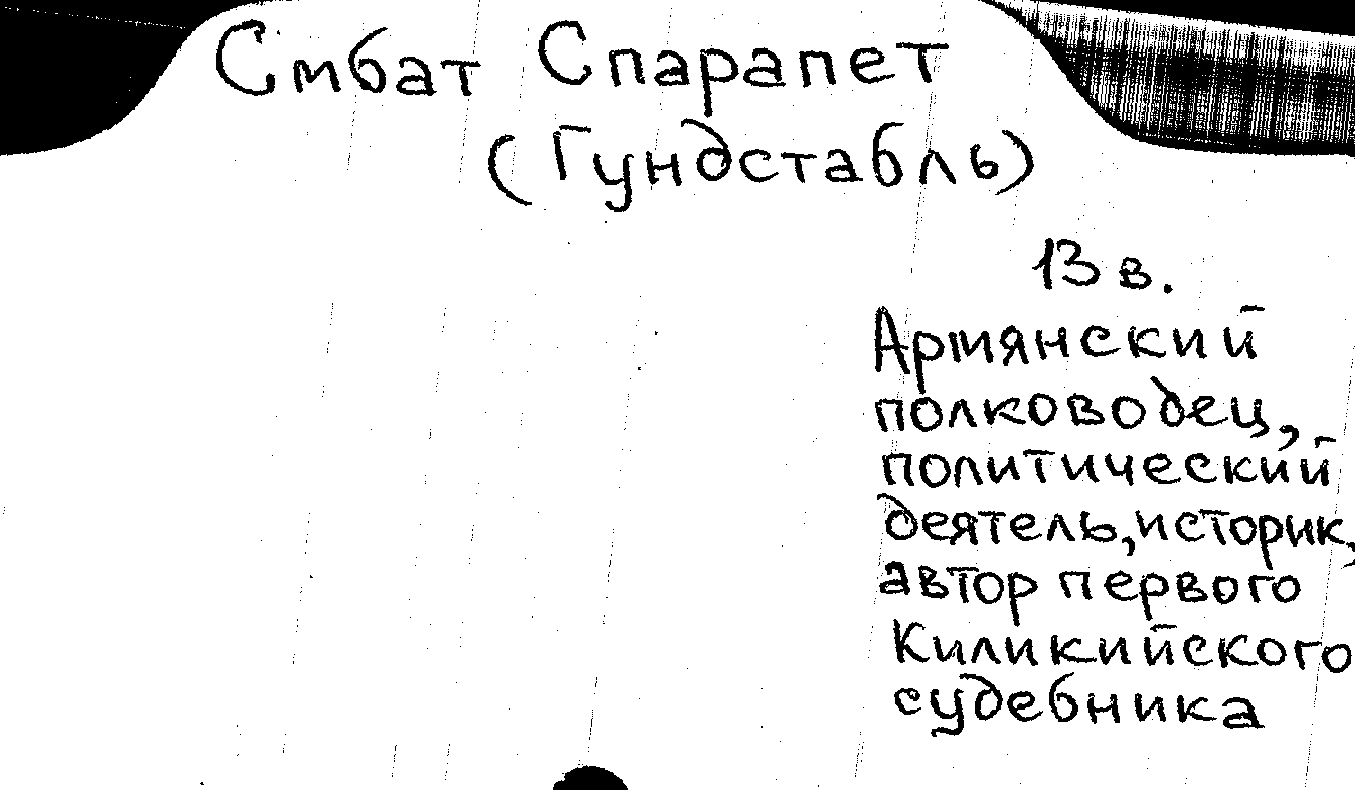 Смбат Спарапет
(Гундстабль)
13 в.
Армянский
полководец,
политический
деятель, историк,
автор первого
Киликийского
судебника